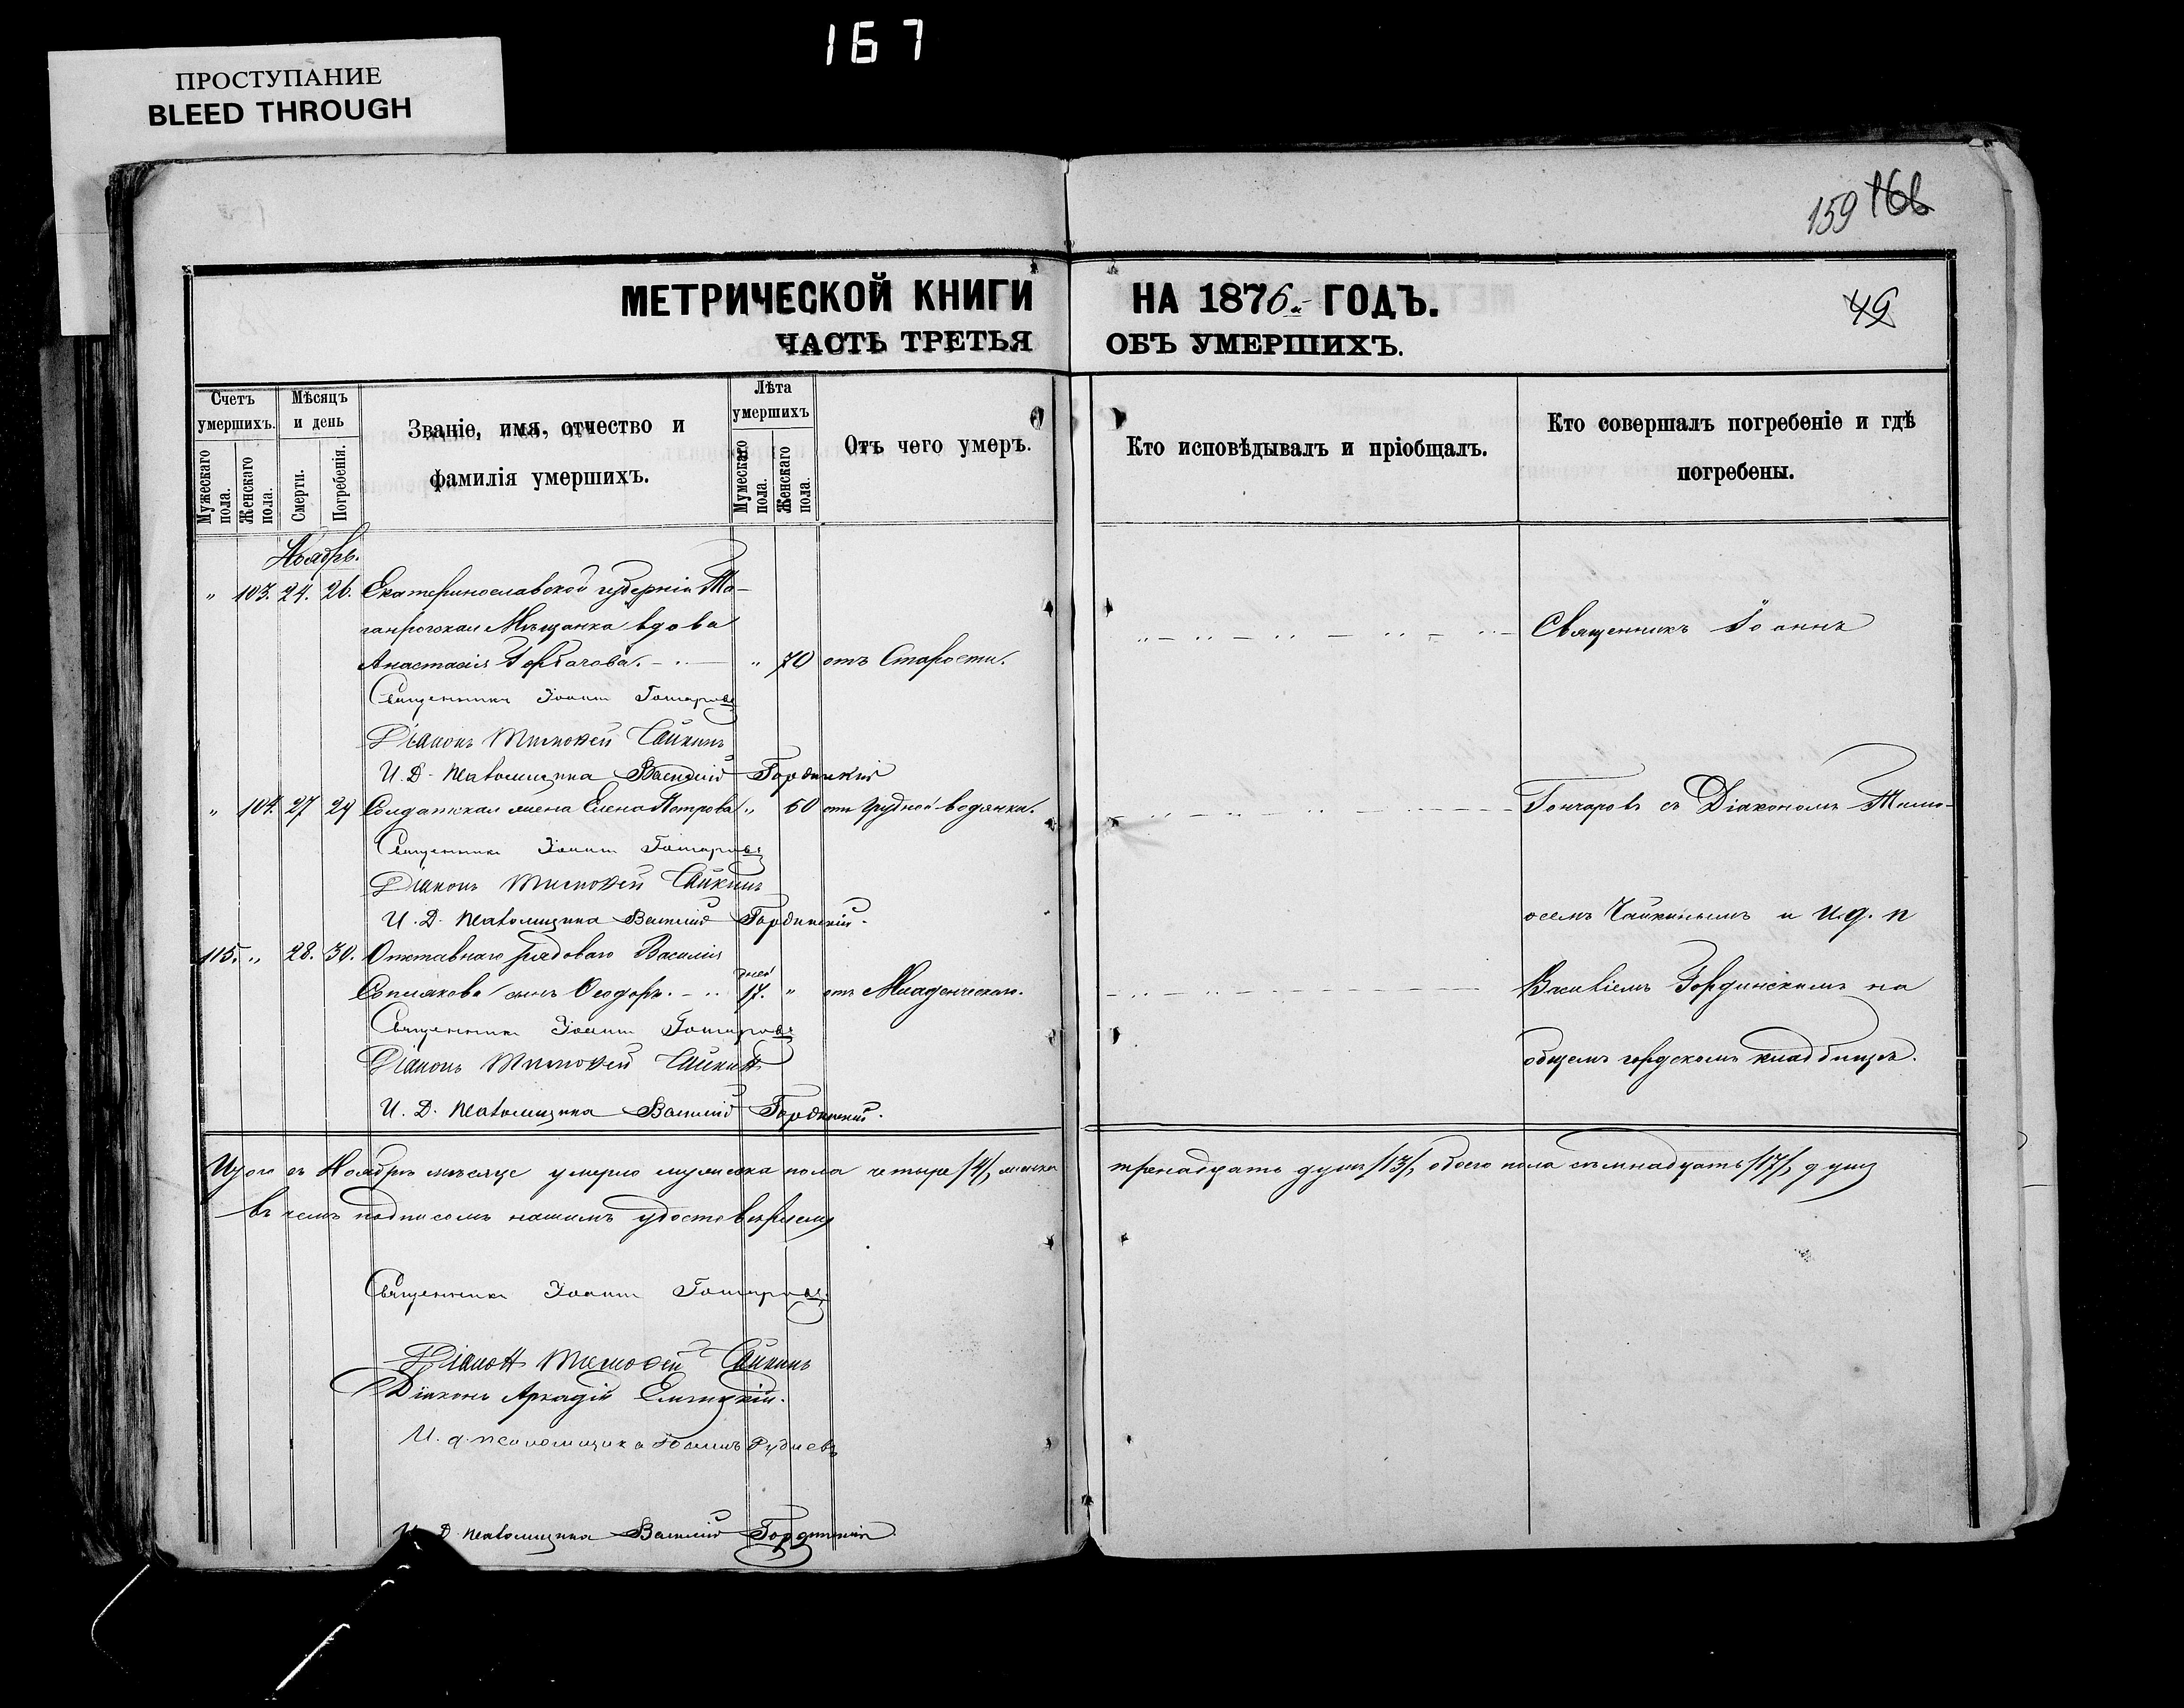 167
ПРОСТУПАНИЕ
BLEED THROUGH
159 166
МЕТРИЧЕСКОЙ КНИГИ НА 1876 ГОДЪ.
49
ЧАСТЬ ТРЕТЬЯ ОБЪ УМЕРШИХЪ.
Счетъ умершихъ.
Мужескаго пола.
Женскаго пола.
Мѣсяцъ и день
Смерти.
Погребенія.
Званіе, имя, отчество и
фамилія умершихъ.
Лѣта умершихъ
Мужескаго пола.
Женскаго пола.
Отъ чего умеръ.
Кто исповѣдывалъ и пріобщалъ.
Кто совершалъ погребеніе и гдѣ
погребены.
Ноябрь.
" 103. 24. 26. Екатеринославской губерніи Та-
ганрогская Мѣщанка вдова
Священникъ Іоаннъ
Анастасія Горбачова. " 70 отъ Старости.
Священникъ Іоаннъ Гончаровъ
Діаконъ Тимоѳей Чайкинъ
И. Д. Псаломщика Василій Гординскій
" 104. 27 29 Солдатская жена Елена Петрова " 60 отъ грудной водянки.
Гончаровъ съ Діакономъ Тимо-
Священникъ Іоаннъ Гончаровъ
Діаконъ Тимоѳей Чайкинъ
И. Д. Псаломщика Василій Гординскій.
ѳеемъ Чайкинымъ и И. д. п
115. " 28. 30. Отставнаго рядоваго Василія
сынъ Ѳеодоръ. дней 17. " отъ Младенческаго.
Василіемъ Гординскимъ на
Священникъ Іоаннъ Гончаровъ
Діаконъ Тимоѳей Чайкинъ
общемъ городскомъ кладбищѣ.
И. Д. Псаломщика Василій Гординскій.
Итого въ Ноябрѣ мѣсяцѣ умерло мужеска пола четыре /4/, женска тринадцать душъ /13/, обоего пола семнадцать /17/, душъ
въ чемъ подписомъ нашимъ удостовѣряемъ
Священникъ Іоаннъ Гончаровъ
Діаконъ Тимоѳей Чайкинъ
Діаконъ Аркадій
И. д. псаломщика Іоаннъ Рудневъ
И. Д. Псаломщика Василій Гординскій